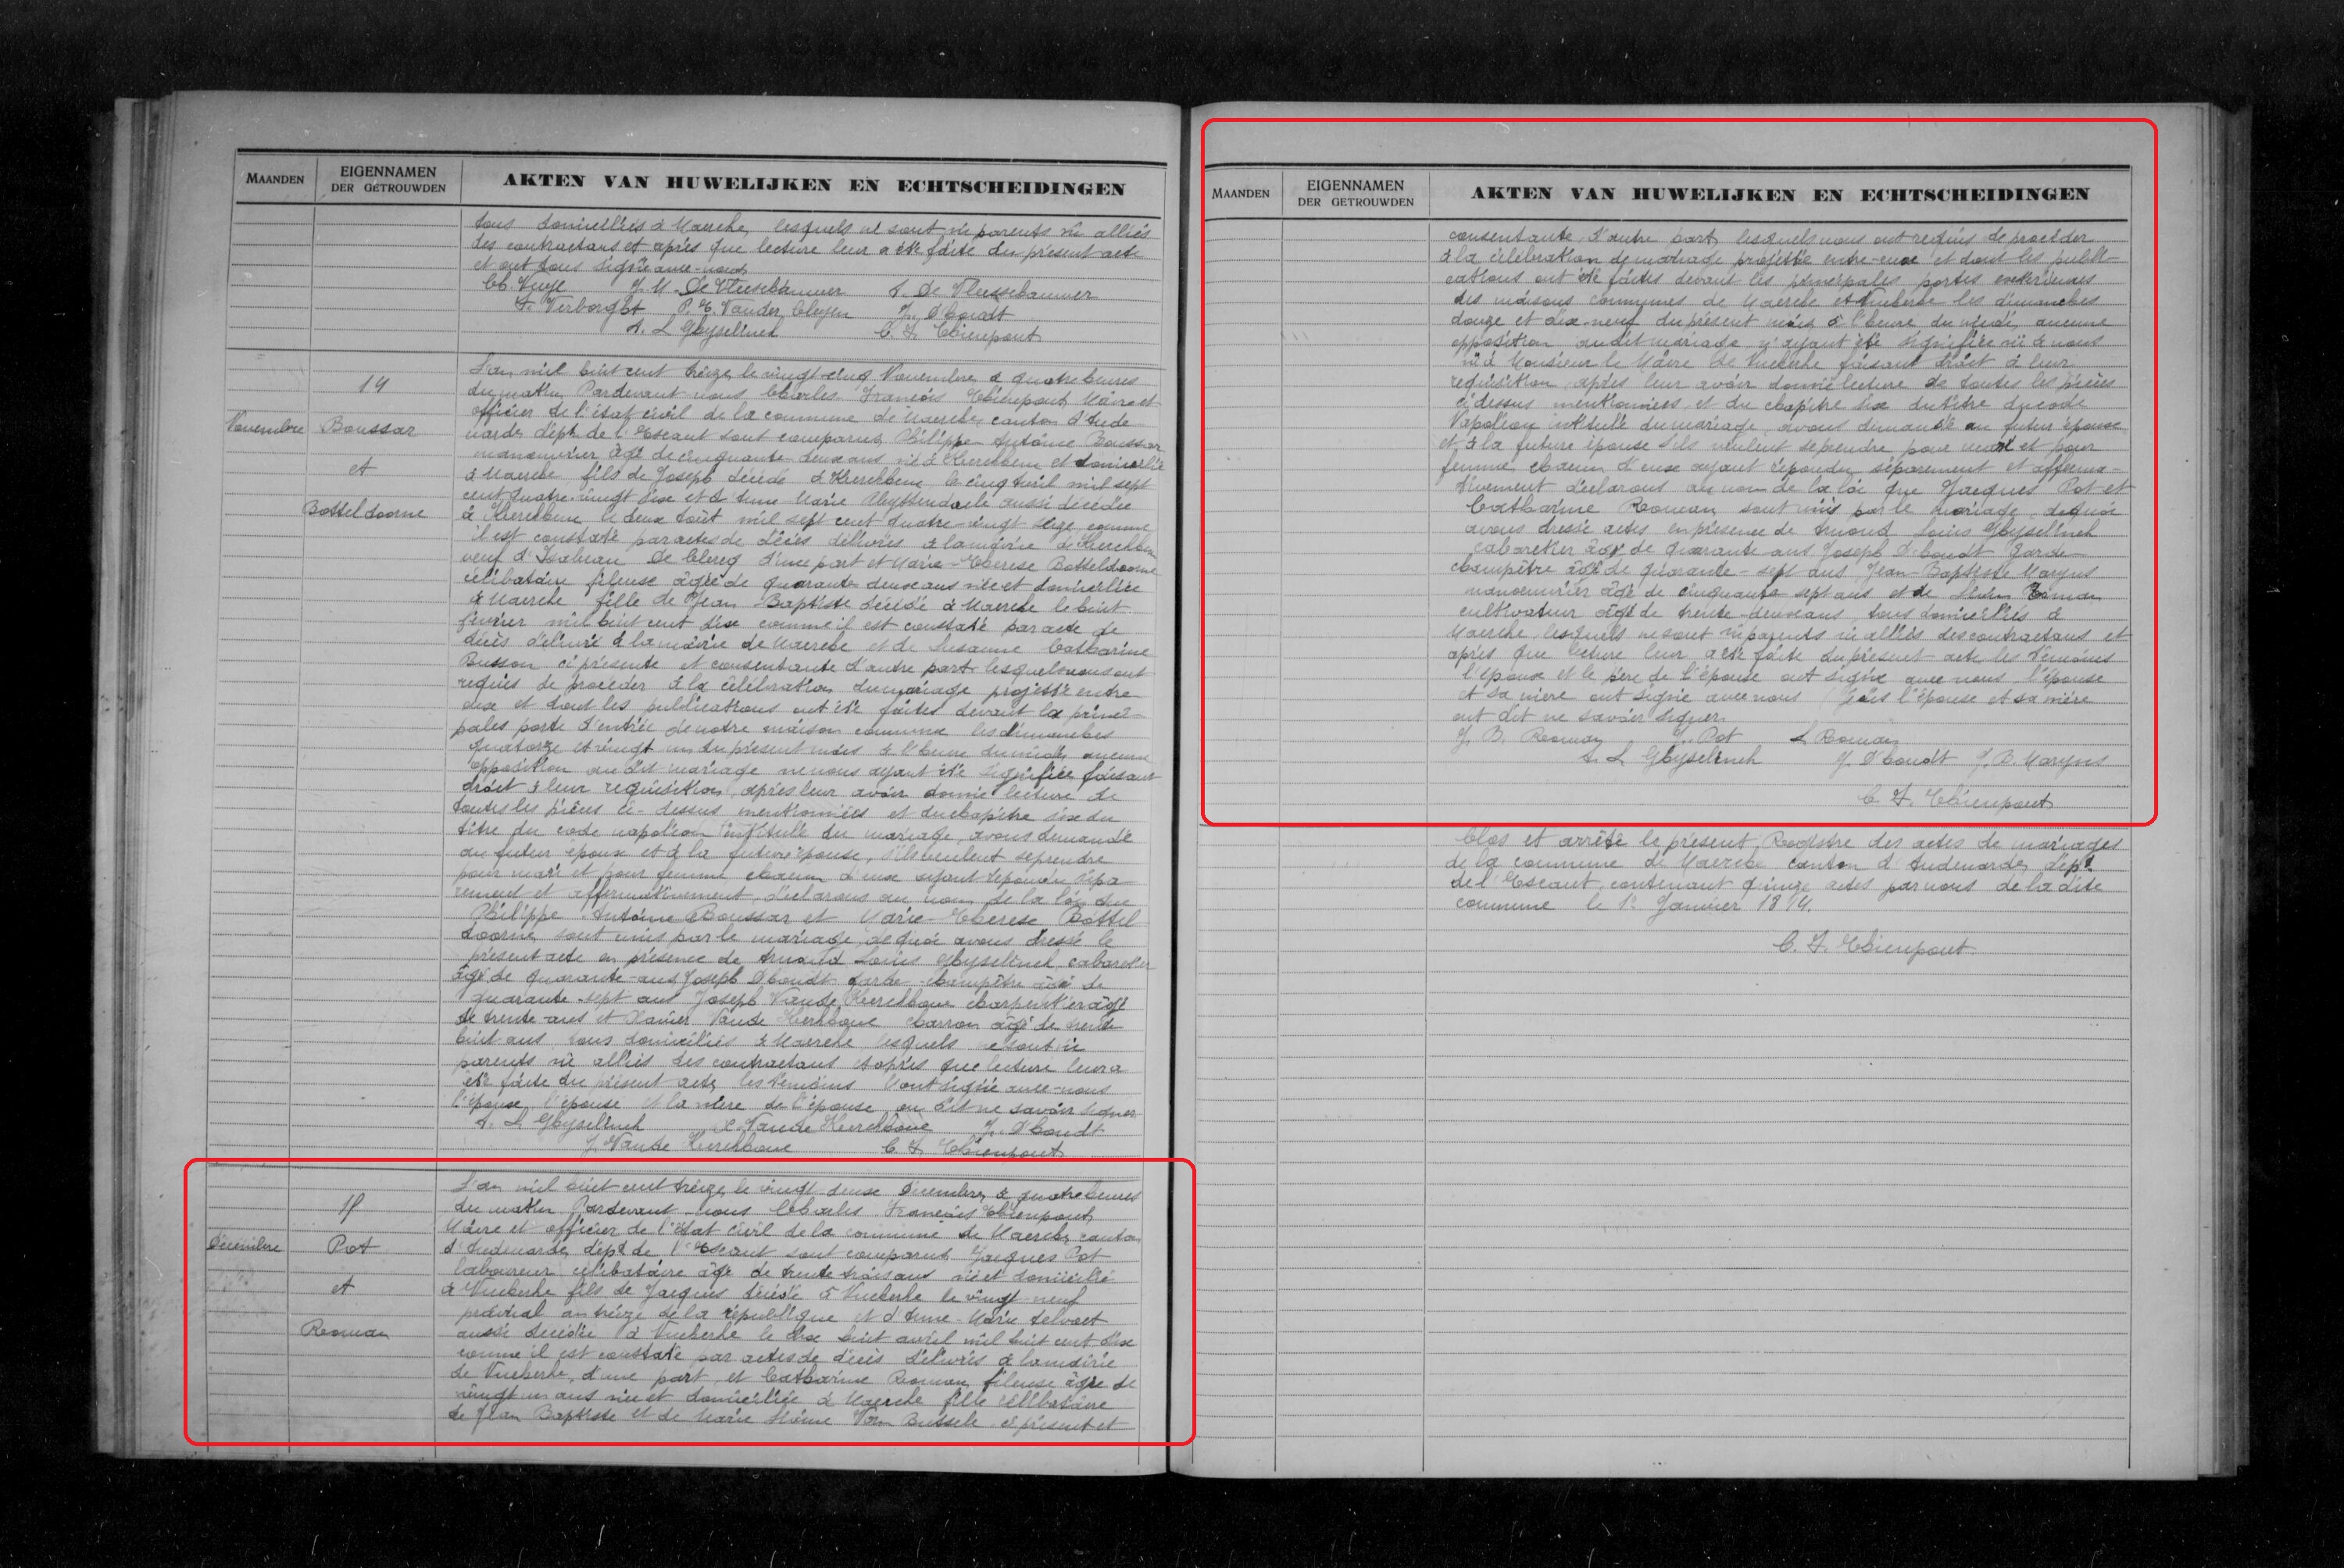 MAANDEN
EIGENNAMEN
DER GETROUWDEN
AKTEN VAN HUWELIJKEN EN ECHTSCHEIDINGEN
tous domiciliés à Maercke, lesquels ne sont ni parents ni alliés
des contractans et après que lecture leur a été faite du présent acte
et ont tous signé avec nous
J. M. De Vleeschauwer
A. De Vleeschauwer
A. Verborght P. E. Vander Cleyen J. D'hondt
A. L. Ghyselinck C. F. Thienpont
14
Novembre
Boussar
et
Botteldoorne
L'an mil huit cent treize, le vingt-cinq Novembre, à quatre heures
du matin, Pardevant nous Charles François Thienpont, Maire et
officier de l'état civil de la commune de Maercke, canton d'Aude-
narde, dépt. de l'Escaut sont comparus, Philippe Antoine Boussar
manouvrier âgé de cinquante deux ans né à Kerckhem et domicilié
à Maercke fils de Joseph décédé à Kerckhem, le cinq Avril mil sept
cent quatre-vingt dix et d'Anne Marie aussi décédée
à Kerckhem le deux Août mil sept cent quatre-vingt seize comme
il est constaté par actes de décès délivrés à la mairie de Kerckhem
veuf d'Isabeau De Clercq d'une part et Marie-Therese Botteldoorne
célibataire fileuse âgée de quarante deux ans née et domiciliée
à Maercke fille de Jean-Baptiste décédé à Maercke le huit
février mil huit cent dix comme il est constaté par acte de
décès délivré à la mairie de Maercke et de Susanne Catharine
Busson ci présente et consentante d'autre part lesquels nous ont
requis de procéder à la célébration du mariage projetté entre
eux et dont les publications ont été faites devant la princi-
pales porte d'entrée de notre maison commune les dimanches
quatorze et vingt un du présent mois à l'heure du midi, aucune
opposition au dit mariage ne nous ayant été signifiée faisant
droit à leur requisition, après leur avoir donné lecture de
toutes les pièces ci-dessus mentionnées et du chapitre six du
titre du code napoléon intitulé du mariage, avons demandé
au futur époux et à la future épouse, s'ils veulent se prendre
pour mari et pour femme chacun d'eux ayant répondu sépa-
rement et affirmativement, déclarons au nom de la loi que
Philippe Antoine Boussar et Marie-Therese Bottel
doorne, sont unis par le mariage, de quoi avons dressé le
présent acte en présence de Arnould Louis Ghyselinck cabaretier
âgé de quarante-ans, Joseph D'hondt garde-champêtre âgé de
quarante-sept ans Joseph Vande Kerckhove charpentier âgé
de trente ans et Xavier Vande Kerkhove charron âgé de trente
huit ans, tous domiciliés à Maercke, lesquels ne sont ni
parents ni alliés des contractans et après que lecture leur a
été faite du présent acte, les témoins l'ont signé avec nous
l'époux, l'épouse et la mère de l'épouse on dit ne savoir signer
A. L. Ghyselinck X. Vande Kerckhove J. D'hondt
J. Vande Kerckhove C. F. Thienpont
15
Décembre
Pot
et
Roman
L'an mil huit cent treize, le vingt-deux Décembre, à quatre heures
du matin, Pardevant nous Charles François Thienpont,
Maire et officier de l'état civil de la commune de Maercke, canton
d'Audenarde, dépt. de l'Escaut sont comparus, Jacques Pot
laboureur célibataire âgé de trente trois ans né et domicilié
à Nukerke fils de Jacques décédé à Nukerke le vingt neuf
prairial an treize de la république et d'Anne-Marie Delvaet
aussi décédée à Nukerke le dix huit avril mil huit cent dix
comme il est constaté par actes de décès délivrés à la mairie
de Nukerke, d'une part, et Catharine Roman, fileuse âgée de
vingt un ans née et domiciliée à Maercke fille célibataire
de Jean Baptiste et de Marie Van Bussele ci présent et
MAANDEN
EIGENNAMEN
DER GETROUWDEN
AKTEN VAN HUWELIJKEN EN ECHTSCHEIDINGEN
consentante, d'autre part, lesquels nous ont requis de procéder
à la célébration de mariage projetté entre-eux et dont les publi-
cations ont été faites devant les principales portes extérieures
des maisons communes de Maercke et Nukerke les dimanches
douze et dix-neuf du présent mois à l'heure du midi, aucune
opposition audit mariage n'ayant été signifiée ni à nous
ni à Monsieur le Maire de Nukerke faisant droit à leur
requisition, après leur avoir donné lecture de toutes les pièces
ci dessus mentionnées, et du chapitre six du titre du code
Napoléon intitulé du mariage, avons demandé au futur époux
et à la future épouse s'ils veulent se prendre pour mari et pour
femme, chacun d'eux ayant répondu séparement et affirma-
tivement déclarons au nom de la loi que Jacques Pot et
Catharine Roman, sont unis par le mariage, de quoi
avons dressé actes en présence de Arnould Louis Ghyselinck
cabaretier âgé de quarante ans Joseph D'hondt Garde-
champêtre âgé de quarante-sept ans, Jean-Baptiste Maryns
manouvrier âgé de cinquante sept ans et de Roman
cultivateur âgé de trente-deux ans, tous domiciliés à
Maercke, lesquels ne sont ni parents ni alliés des contractans et
après que lecture leur a été faite du présent acte, les témoins
l'époux et le père de l'épouse ont signé avec nous, l'épouse
et sa mère ont signé avec nous l'épouse et sa mère
ont dit ne savoir signer.
J. B. Roman J. Pot L Roman
A. L Ghyselinck J. D'hondt J. B. Maryns
C. F. Thienpont
Clos et arrêté le présent Registre des actes de mariages
de la commune de Maercke canton d'Audenarde, dépt.
de l'Escaut, contenant quinze actes par nous de la dite
commune le 1r Janvier 1814.
C. F. Thienpont